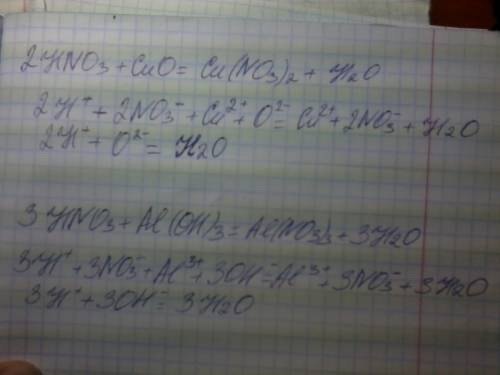 2HNO₃ + CuO = Cu(NO₃)₂ + H₂O
2H⁺ + 2NO₃⁻ + Cu²⁺ + O²⁻ = Cu²⁺ + 2NO₃⁻ + H₂O
2H⁺ + O²⁻ = H₂O
3HNO₃ + Al(OH)₃ = Al(NO₃)₃ + 3H₂O
3H⁺ + 3NO₃⁻ + Al³⁺ + 3OH⁻ = Al³⁺ + 3NO₃⁻ + 3H₂O
3H⁺ + 3OH⁻ = 3H₂O